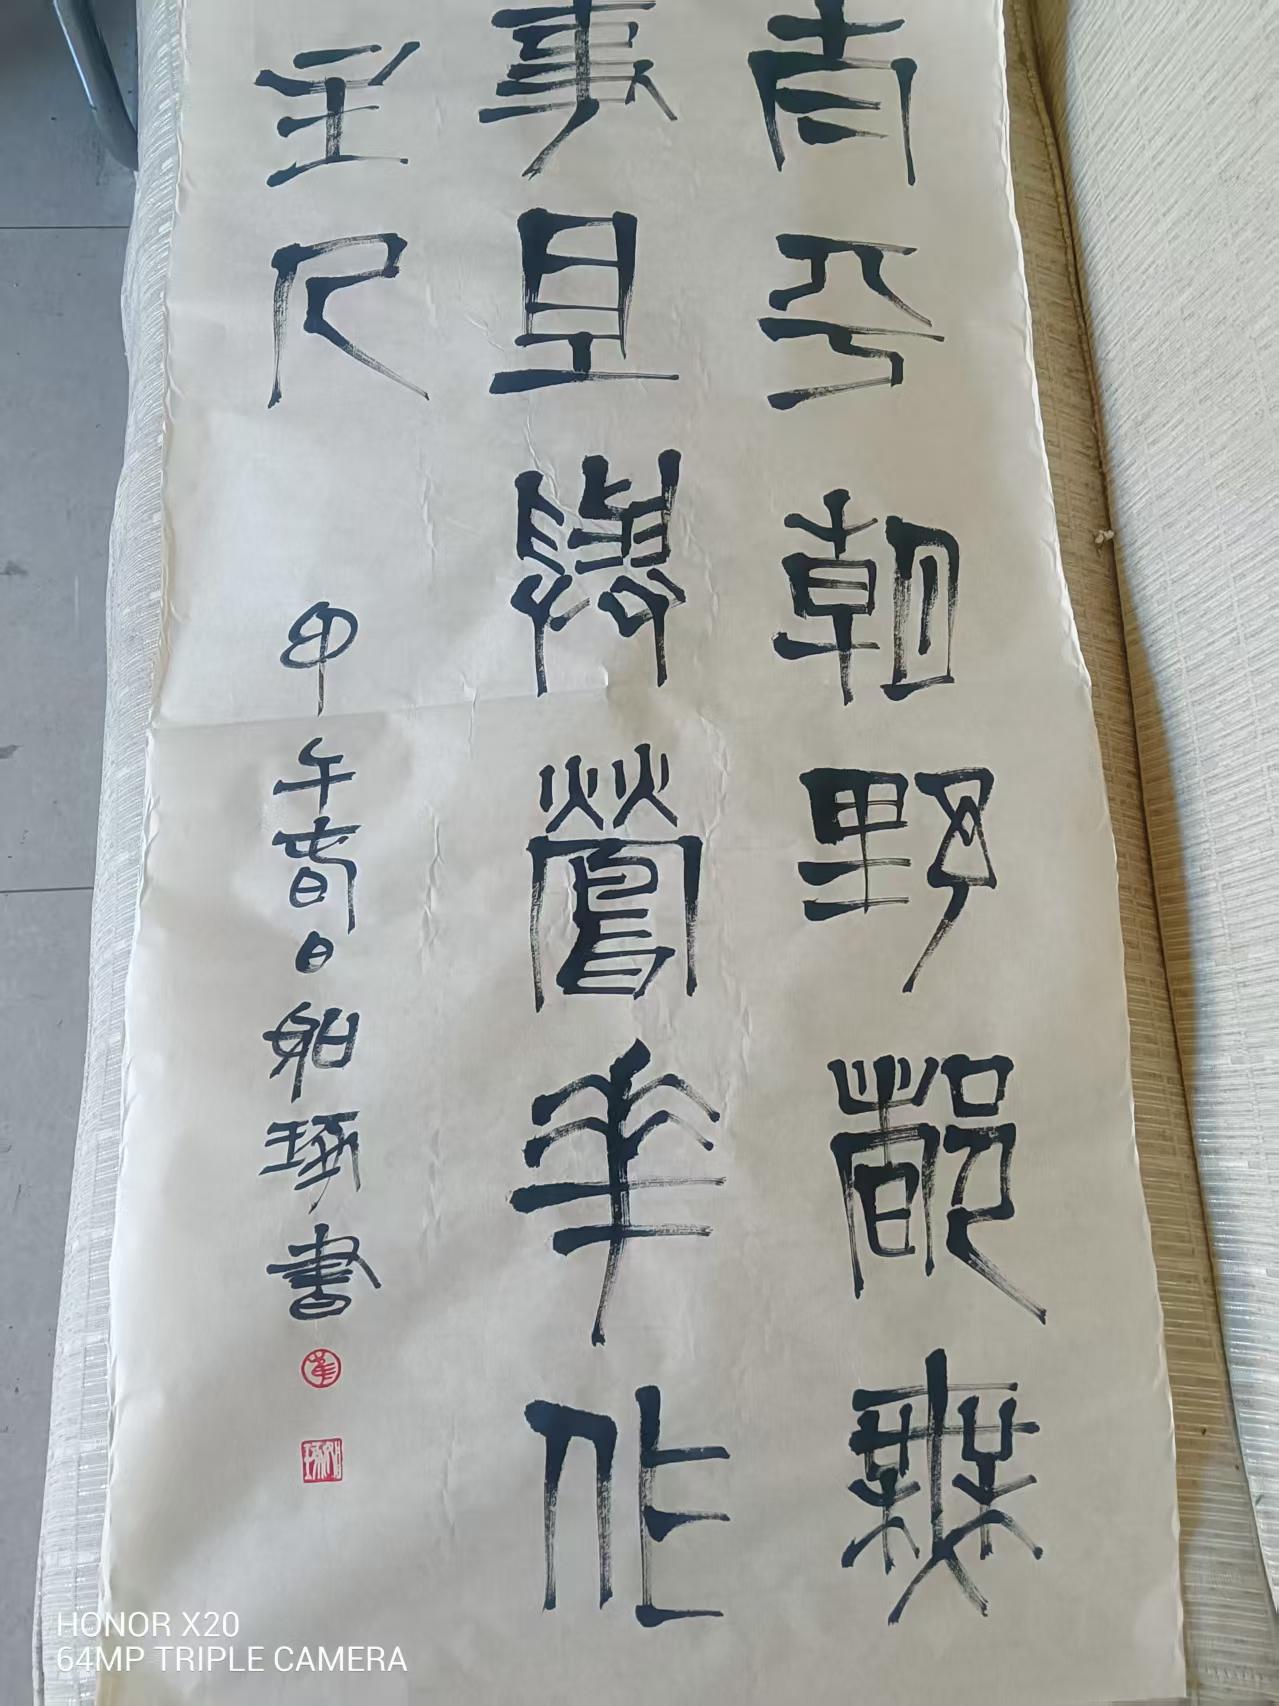 平朝野都無
事且與鶯華作
主人
甲午春日如琢書
HONOR X20
64MP TRIPLE CAMERA